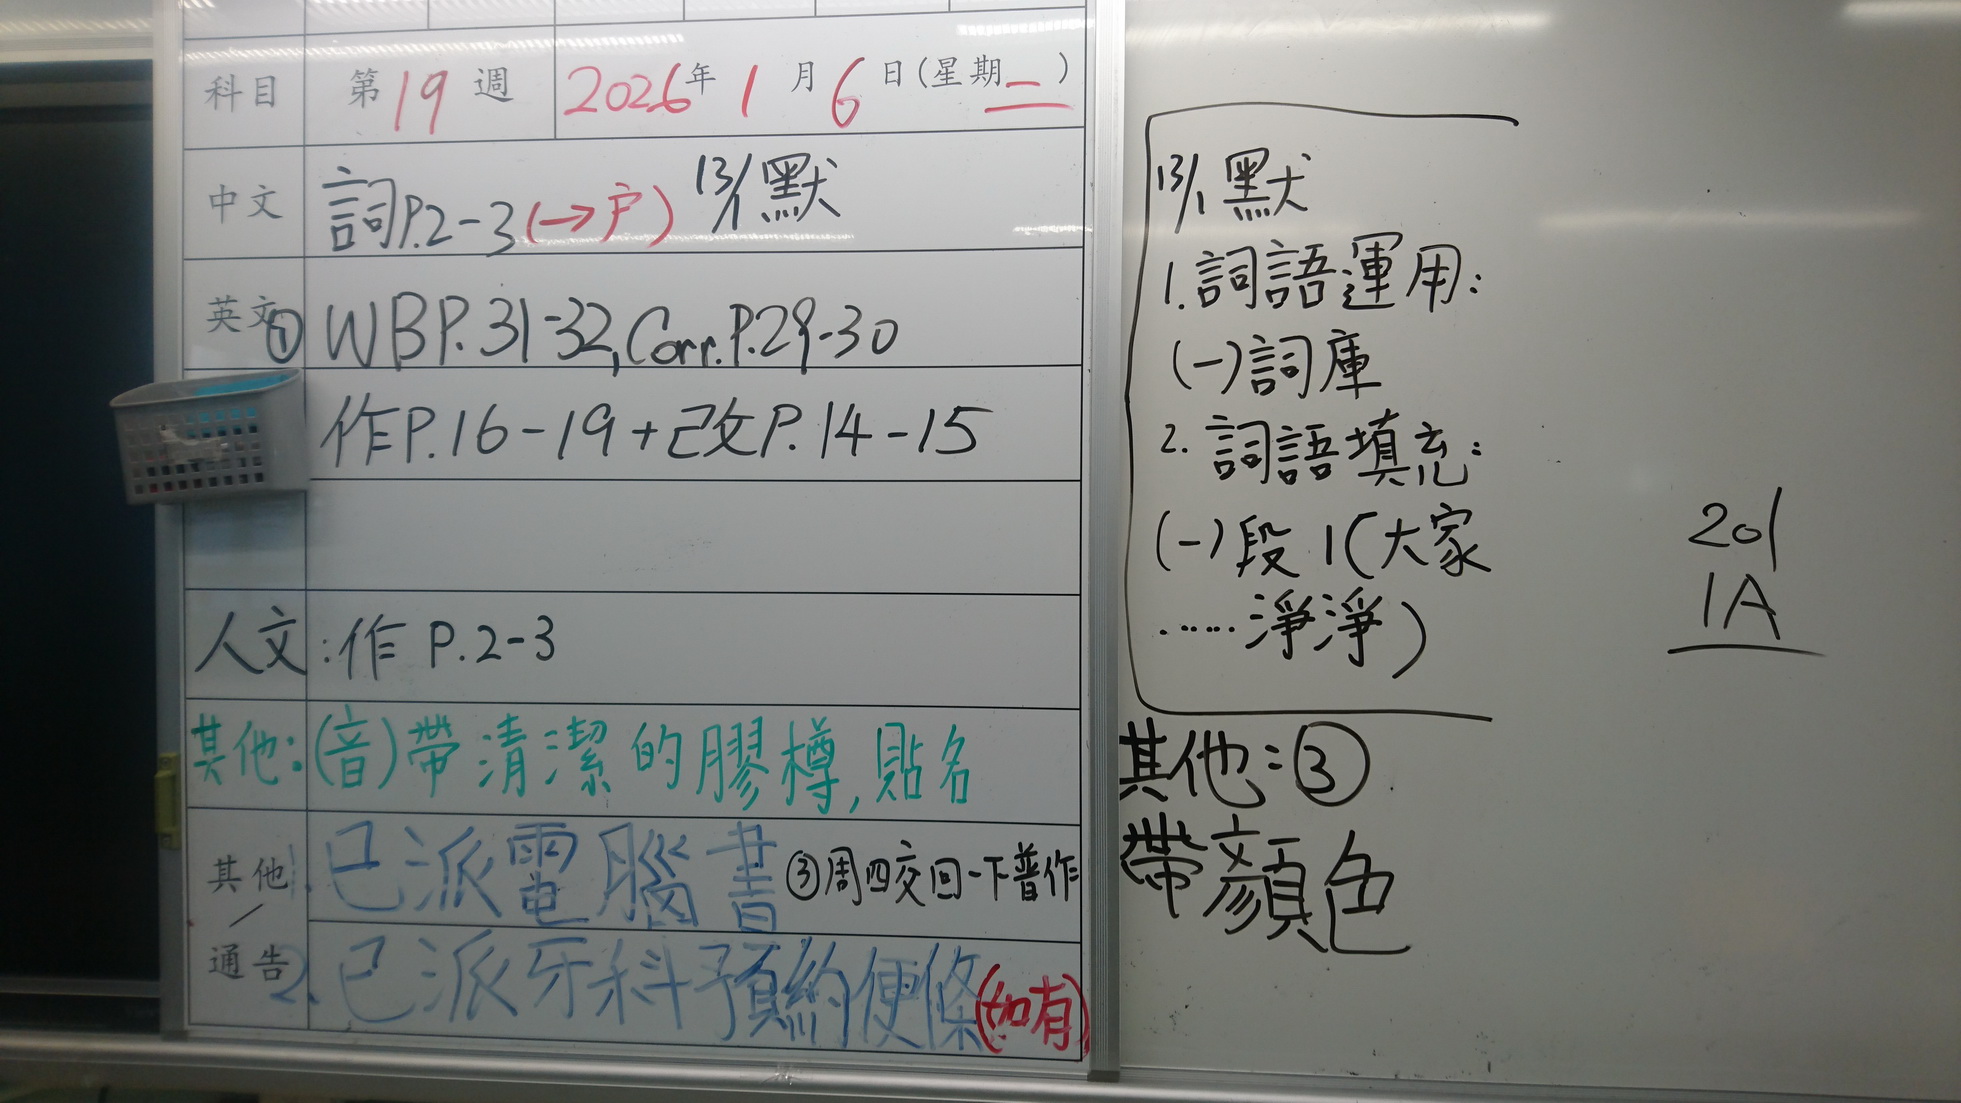 科目 第19週 2026年1月6日(星期二)
中文 詞P.2-3(→戶) 13/1默
英文 ① WB P.31-32, Corr. P.29-30
作P.16-19+改P.14-15
人文:作 P.2-3
其他:(音)帶清潔的膠樽,貼名
其他/通告
1. 已派電腦書 ③周四交回一下普作
2. 已派牙科預約便條(如有)
13/1默
1.詞語運用:
(一)詞庫
2.詞語填充:
(一)段1(大家
……淨淨)
其他:③
帶顏色
201
1A